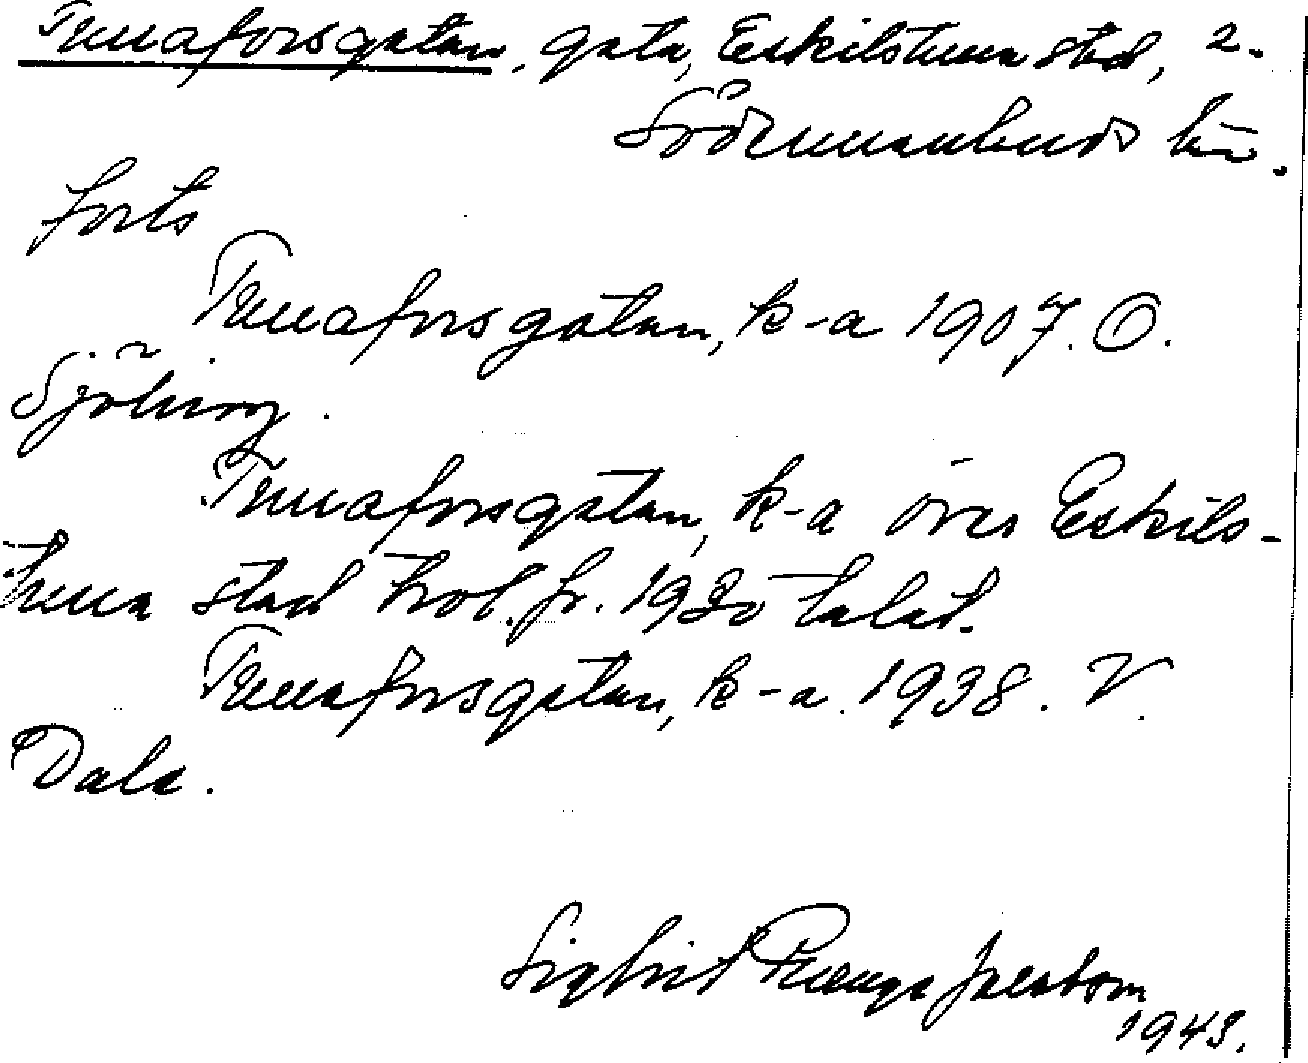 Tunaforsgatan, gata, Eskilstuna stad, 2.
Södermanlands län.
forts
Tunaforsgatan, k-a 1907. O.
Sjöling.
Tunaforsgatan, k-a över Eskils-
tuna stad trol. fr. 1920 talet.
Tunaforsgatan, k-a. 1938. V.
Dala.
Sigbrit Jacobson
1943.